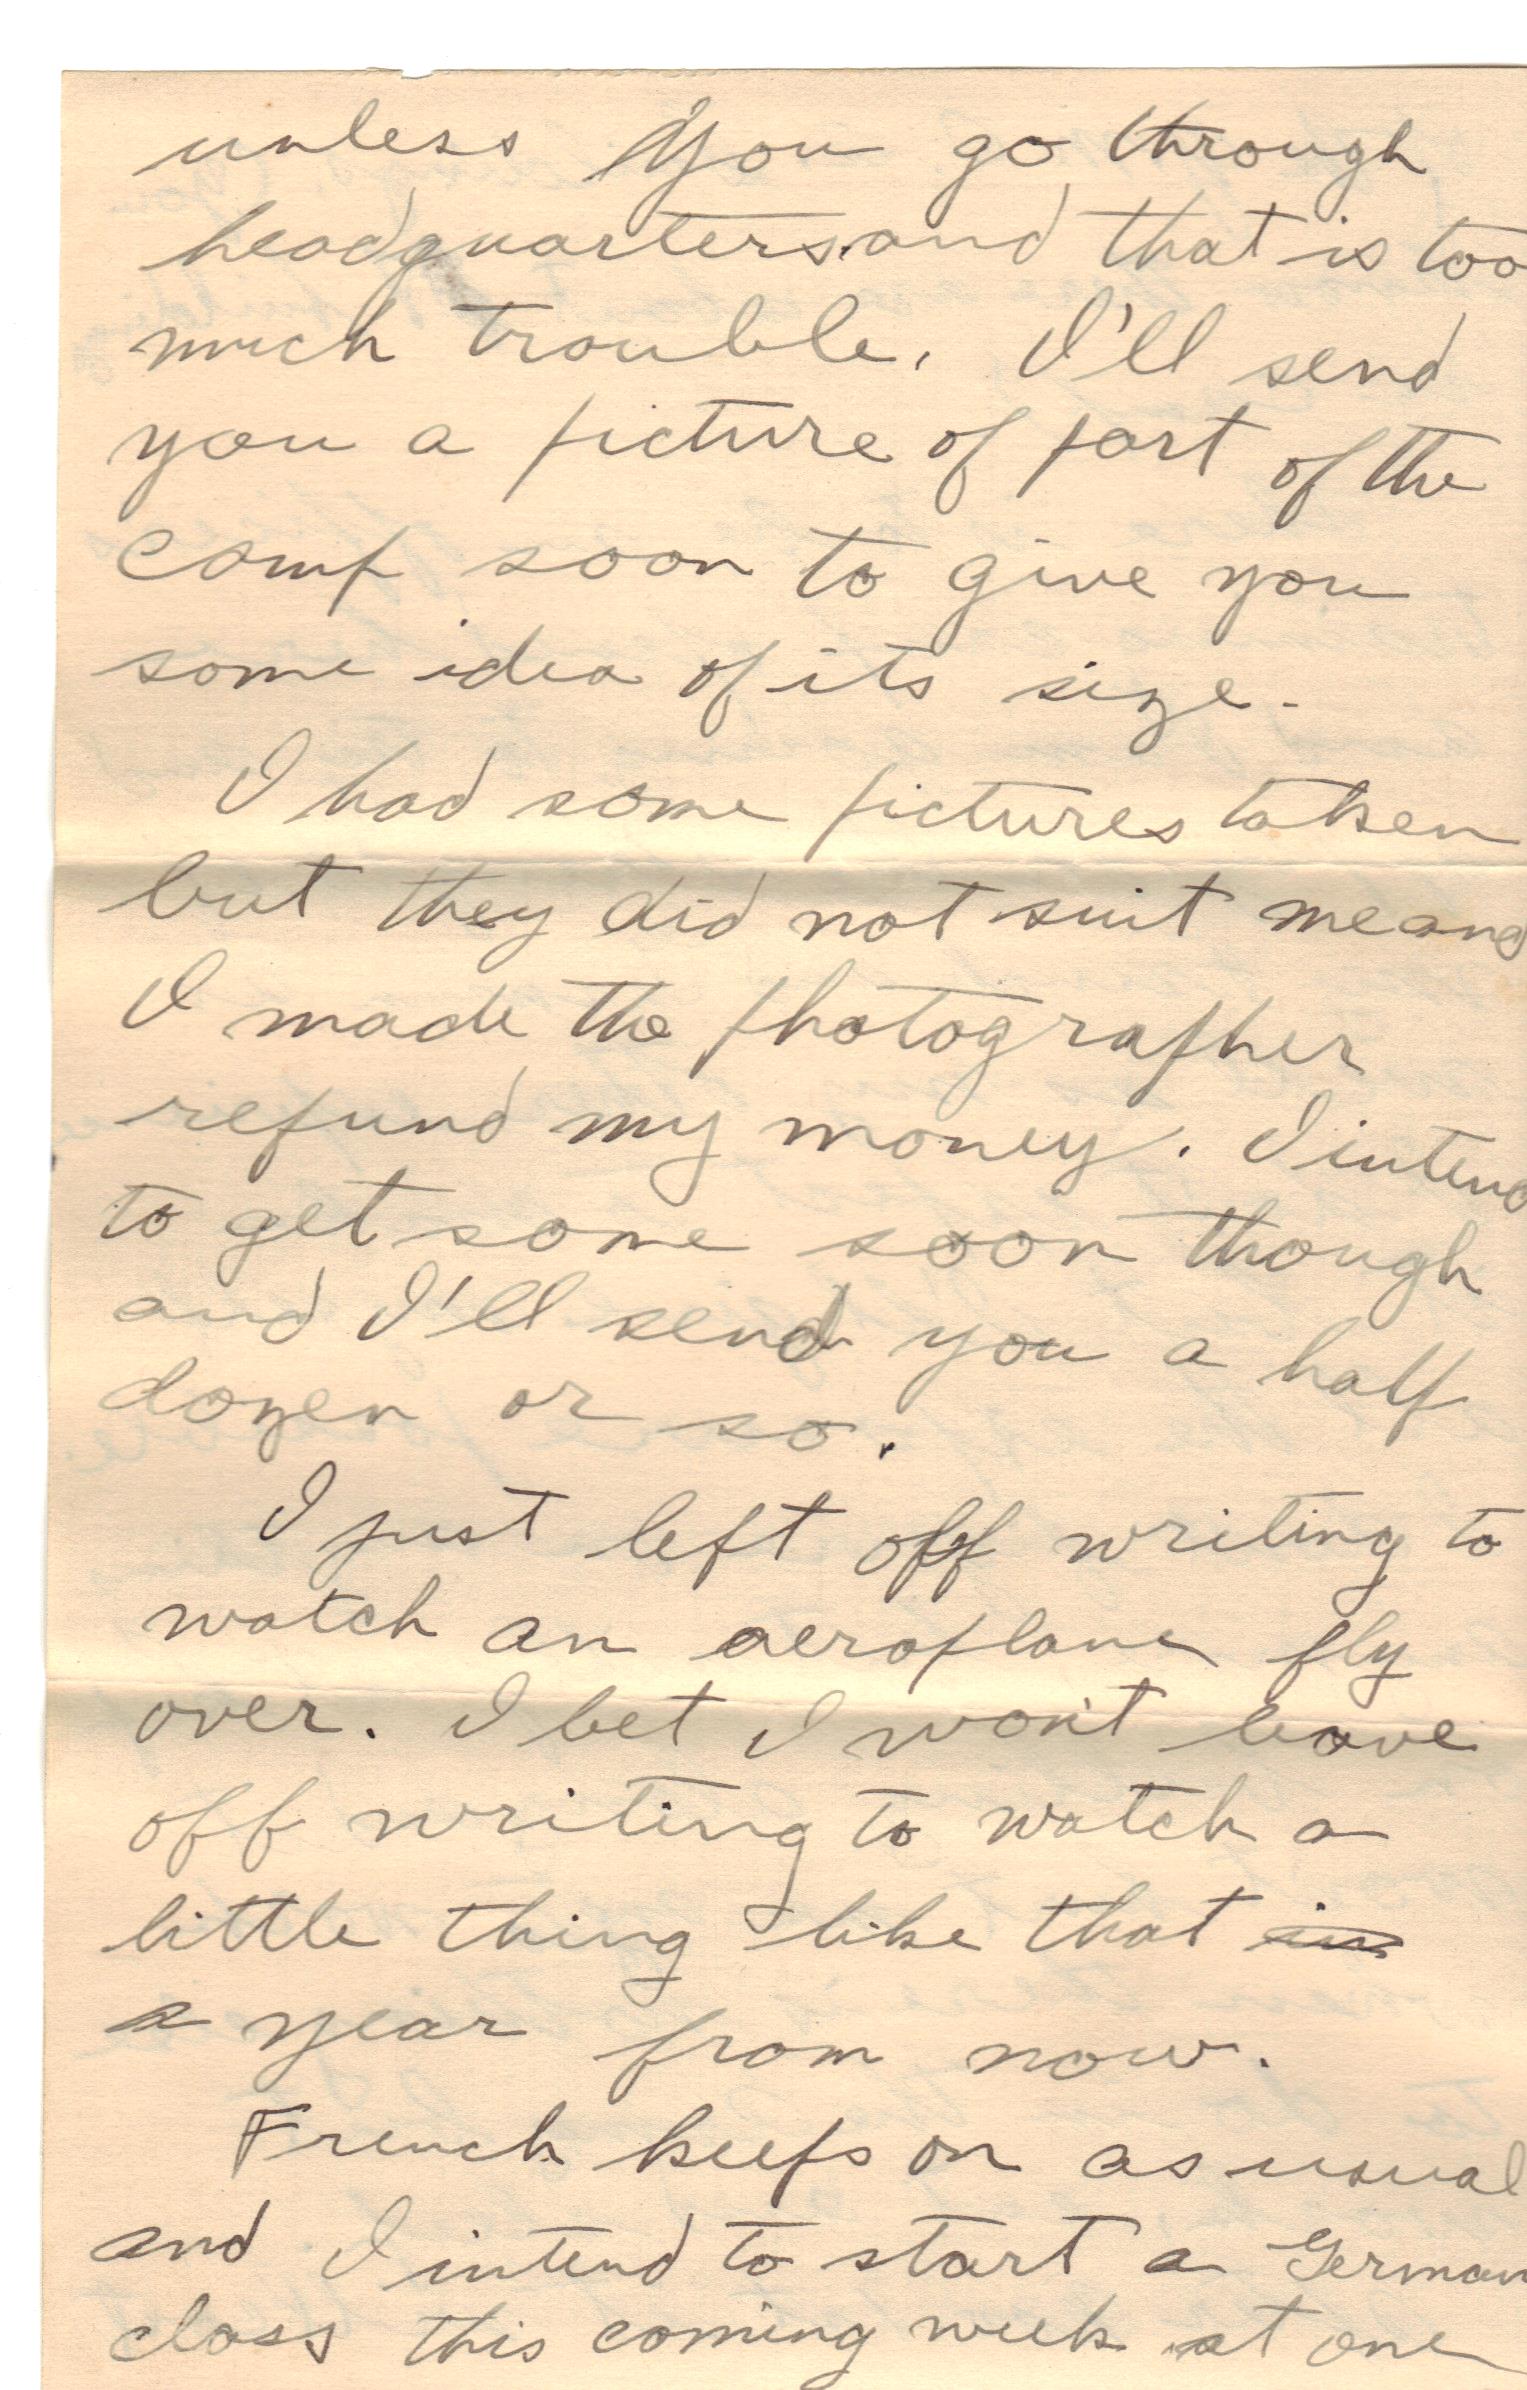 unless you go through
headquarters and that is too
much trouble. I'll send
you a picture of part of the
camp soon to give you
some idea of its size.
I had some pictures taken
but they did not suit me and
I made the photographer
refund my money. I intend
to get some soon though
and I'll send you a half
dozen or so.
I just left off writing to
watch an aeroplane fly
over. I bet I won't leave
off writing to watch a
little thing like that in
a year from now.
French keeps on as usual
and I intend to start a German
class this coming week at one